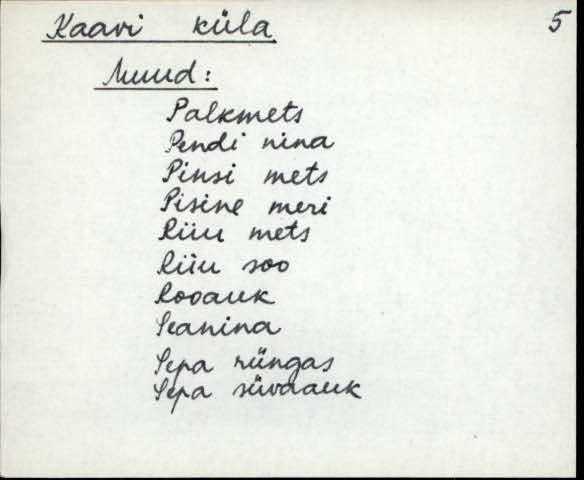 Kaavi küla 5
Muud:
Palkmets
Pendi nina
Pinsi mets
Pisine meri
Riiu mets
Riiu soo
Rooauk
Seanina
Sepa rüngas
Sepa süvaauk